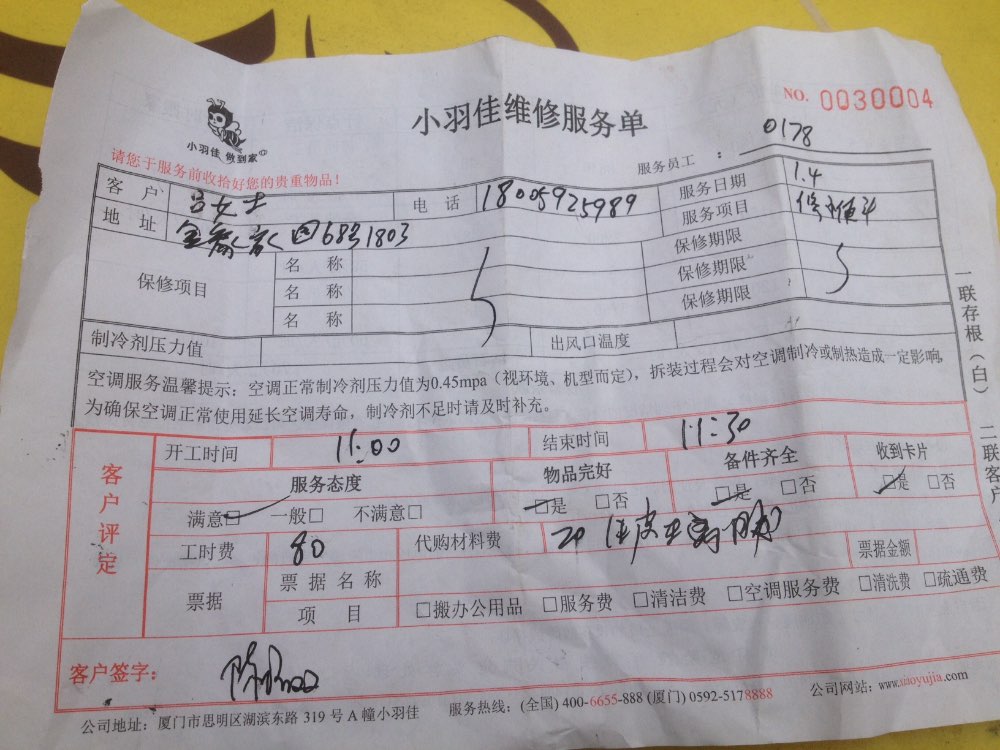 小羽佳维修服务单
NO. 0030004
小羽佳 做到家
请您于服务前收拾好您的贵重物品!
服务员工 : 0178
客户 吕女士 电话 18005925989 服务日期 1.4
地址 金 家园 1803 服务项目
保修项目 名称 保修期限
名称 保修期限
名称 保修期限
制冷剂压力值 出风口温度
空调服务温馨提示：空调正常制冷剂压力值为0.45mpa（视环境、机型而定），拆装过程会对空调制冷或制热造成一定影响,
为确保空调正常使用延长空调寿命，制冷剂不足时请及时补充。
客户评定
开工时间 11:00 结束时间 11:30
服务态度 物品完好 备件齐全 收到卡片
满意□ 一般□ 不满意□ □是 □否 □是 □否 □是 □否
工时费 80 代购材料费 20 票据金额
票据 票据名称
项目 □搬办公用品 □服务费 □清洁费 □空调服务费 □清洗费 □疏通费
客户签字：
公司地址：厦门市思明区湖滨东路 319 号 A 幢小羽佳 服务热线：(全国) 400-6655-888 (厦门) 0592-5178888 公司网站：www.xiaoyujia.com
一联存根（白）
二联客户